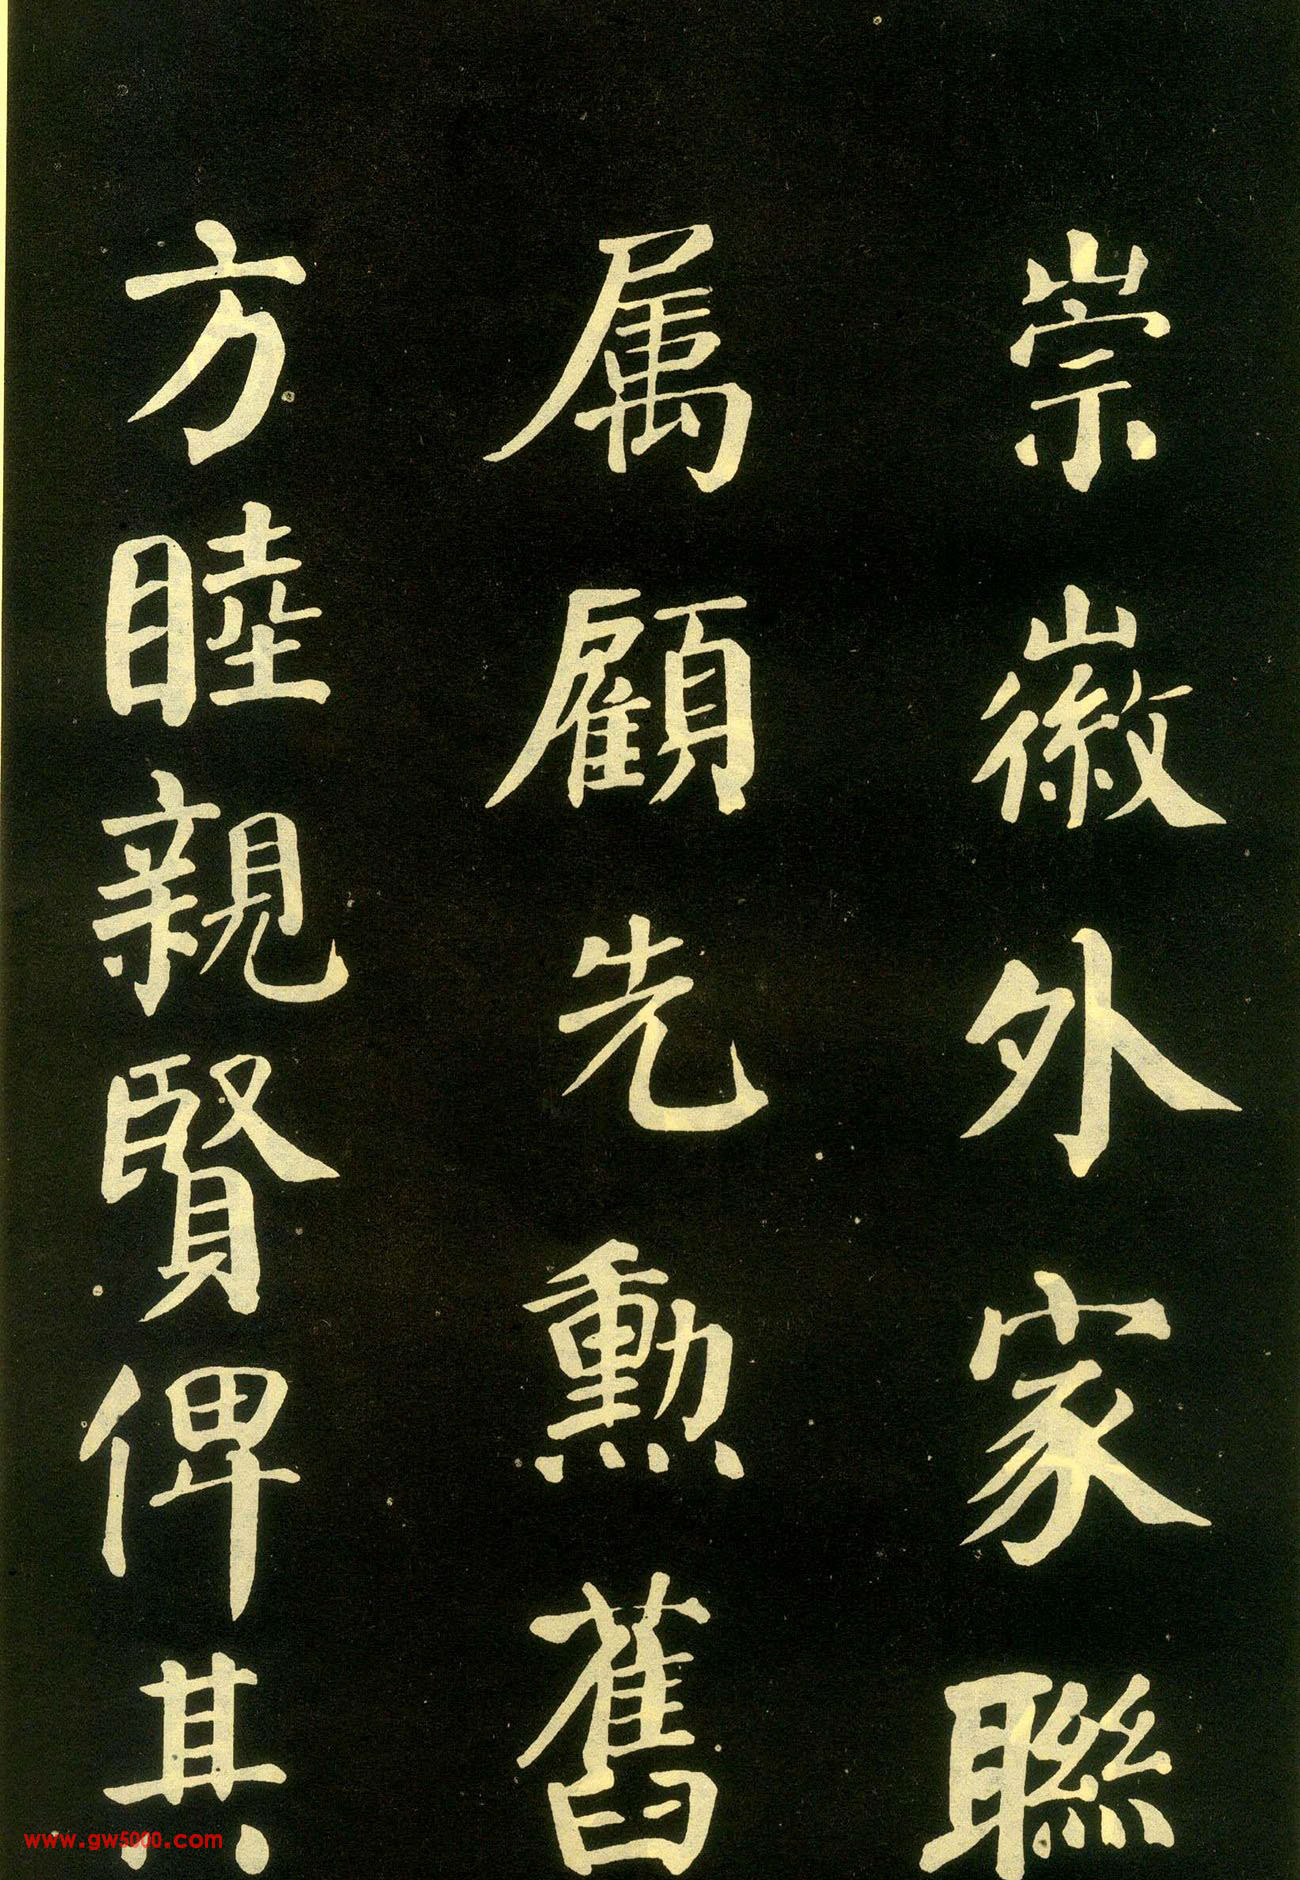 崇徽外家聯
属顧先勳舊
方睦親賢俾其
www.gw5000.com